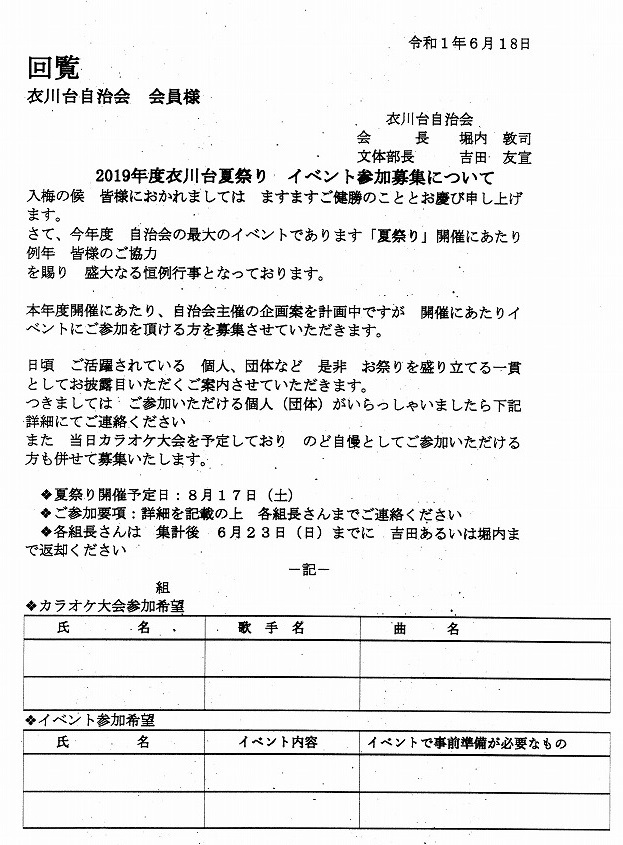 令和１年６月１８日
回覧
衣川台自治会　会員様
衣川台自治会
会　　　長　　堀内　敦司
文体部長　　　吉田　友宣
2019年度衣川台夏祭り　イベント参加募集について
入梅の候　皆様におかれましては　ますますご健勝のこととお慶び申し上げ
ます。
さて、今年度　自治会の最大のイベントであります「夏祭り」開催にあたり
例年　皆様のご協力
を賜り　盛大なる恒例行事となっております。
本年度開催にあたり、自治会主催の企画案を計画中ですが　開催にあたりイ
ベントにご参加を頂ける方を募集させていただきます。
日頃　ご活躍されている　個人、団体など　是非　お祭りを盛り立てる一貫
としてお披露目いただくご案内させていただきます。
つきましては　ご参加いただける個人（団体）がいらっしゃいましたら下記
詳細にてご連絡ください
また　当日カラオケ大会を予定しており　のど自慢としてご参加いただける
方も併せて募集いたします。
❖夏祭り開催予定日：８月１７日（土）
❖ご参加要項：詳細を記載の上　各組長さんまでご連絡ください
❖各組長さんは　集計後　６月２３日（日）までに　吉田あるいは堀内ま
で返却ください
－記－
組
❖カラオケ大会参加希望
氏　　　　名　　歌　手　名　　曲　　　名
❖イベント参加希望
氏　　　　名　　イベント内容　　イベントで事前準備が必要なもの